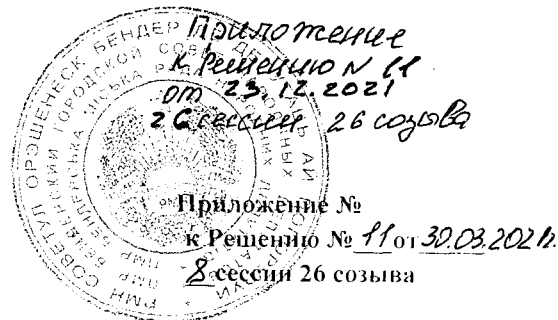 Приложение
к Решению N 11
от 23.12.2021
26 сессии 26 созыва
Приложение №
к Решению № 11 от 30.03.2021г.
8 сессии 26 созыва